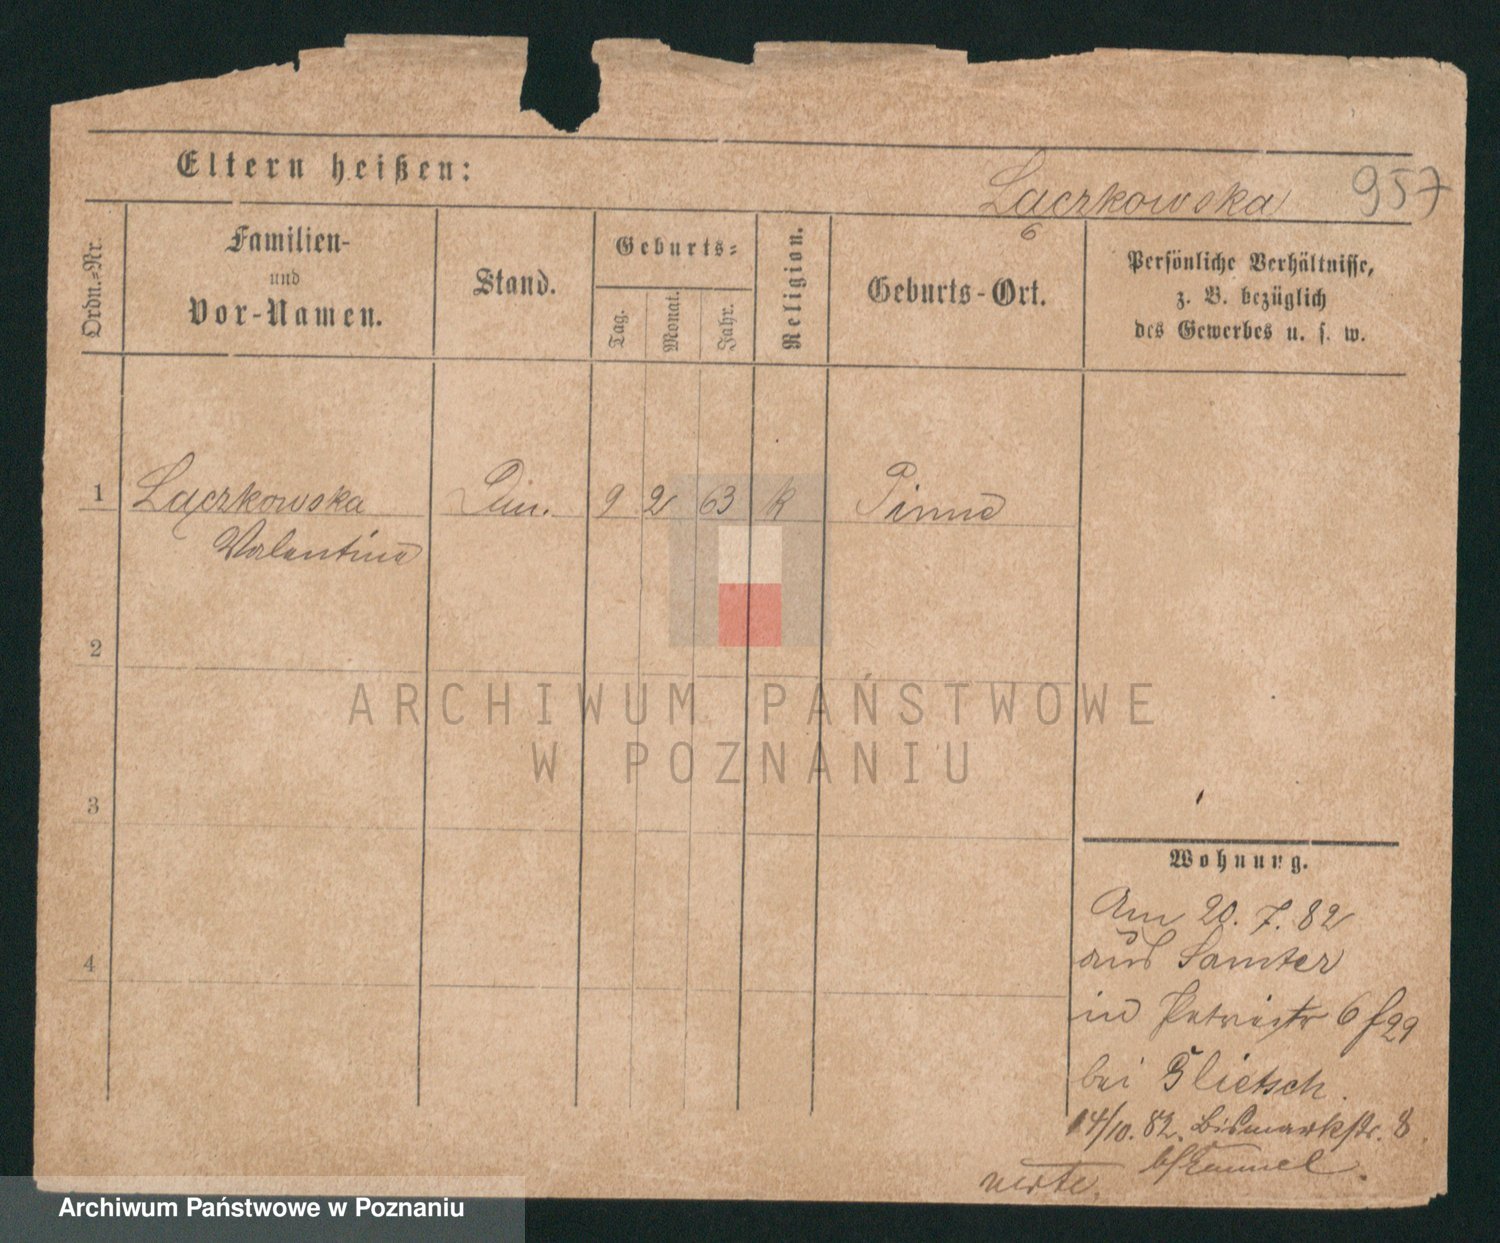 Eltern heißen:
Łączkowska 957
Ordn.-Nr.
Familien-
und
Vor-Namen.
Stand.
Geburts-
Tag.
Monat.
Jahr.
Religion.
Geburts-Ort.
Persönliche Verhältnisse,
z. B. bezüglich
des Gewerbes u. s. w.
1 Łączkowska 9 2 63 k Pinne
Valentine
2
3
4
Wohnung.
Am 20. 7. 82
aus Samter
in Petristr 6
bei Glietsch.
14/10. 82. Bismarkstr. 8.
verte.
ARCHIWUM PAŃSTWOWE
W POZNANIU
Archiwum Państwowe w Poznaniu